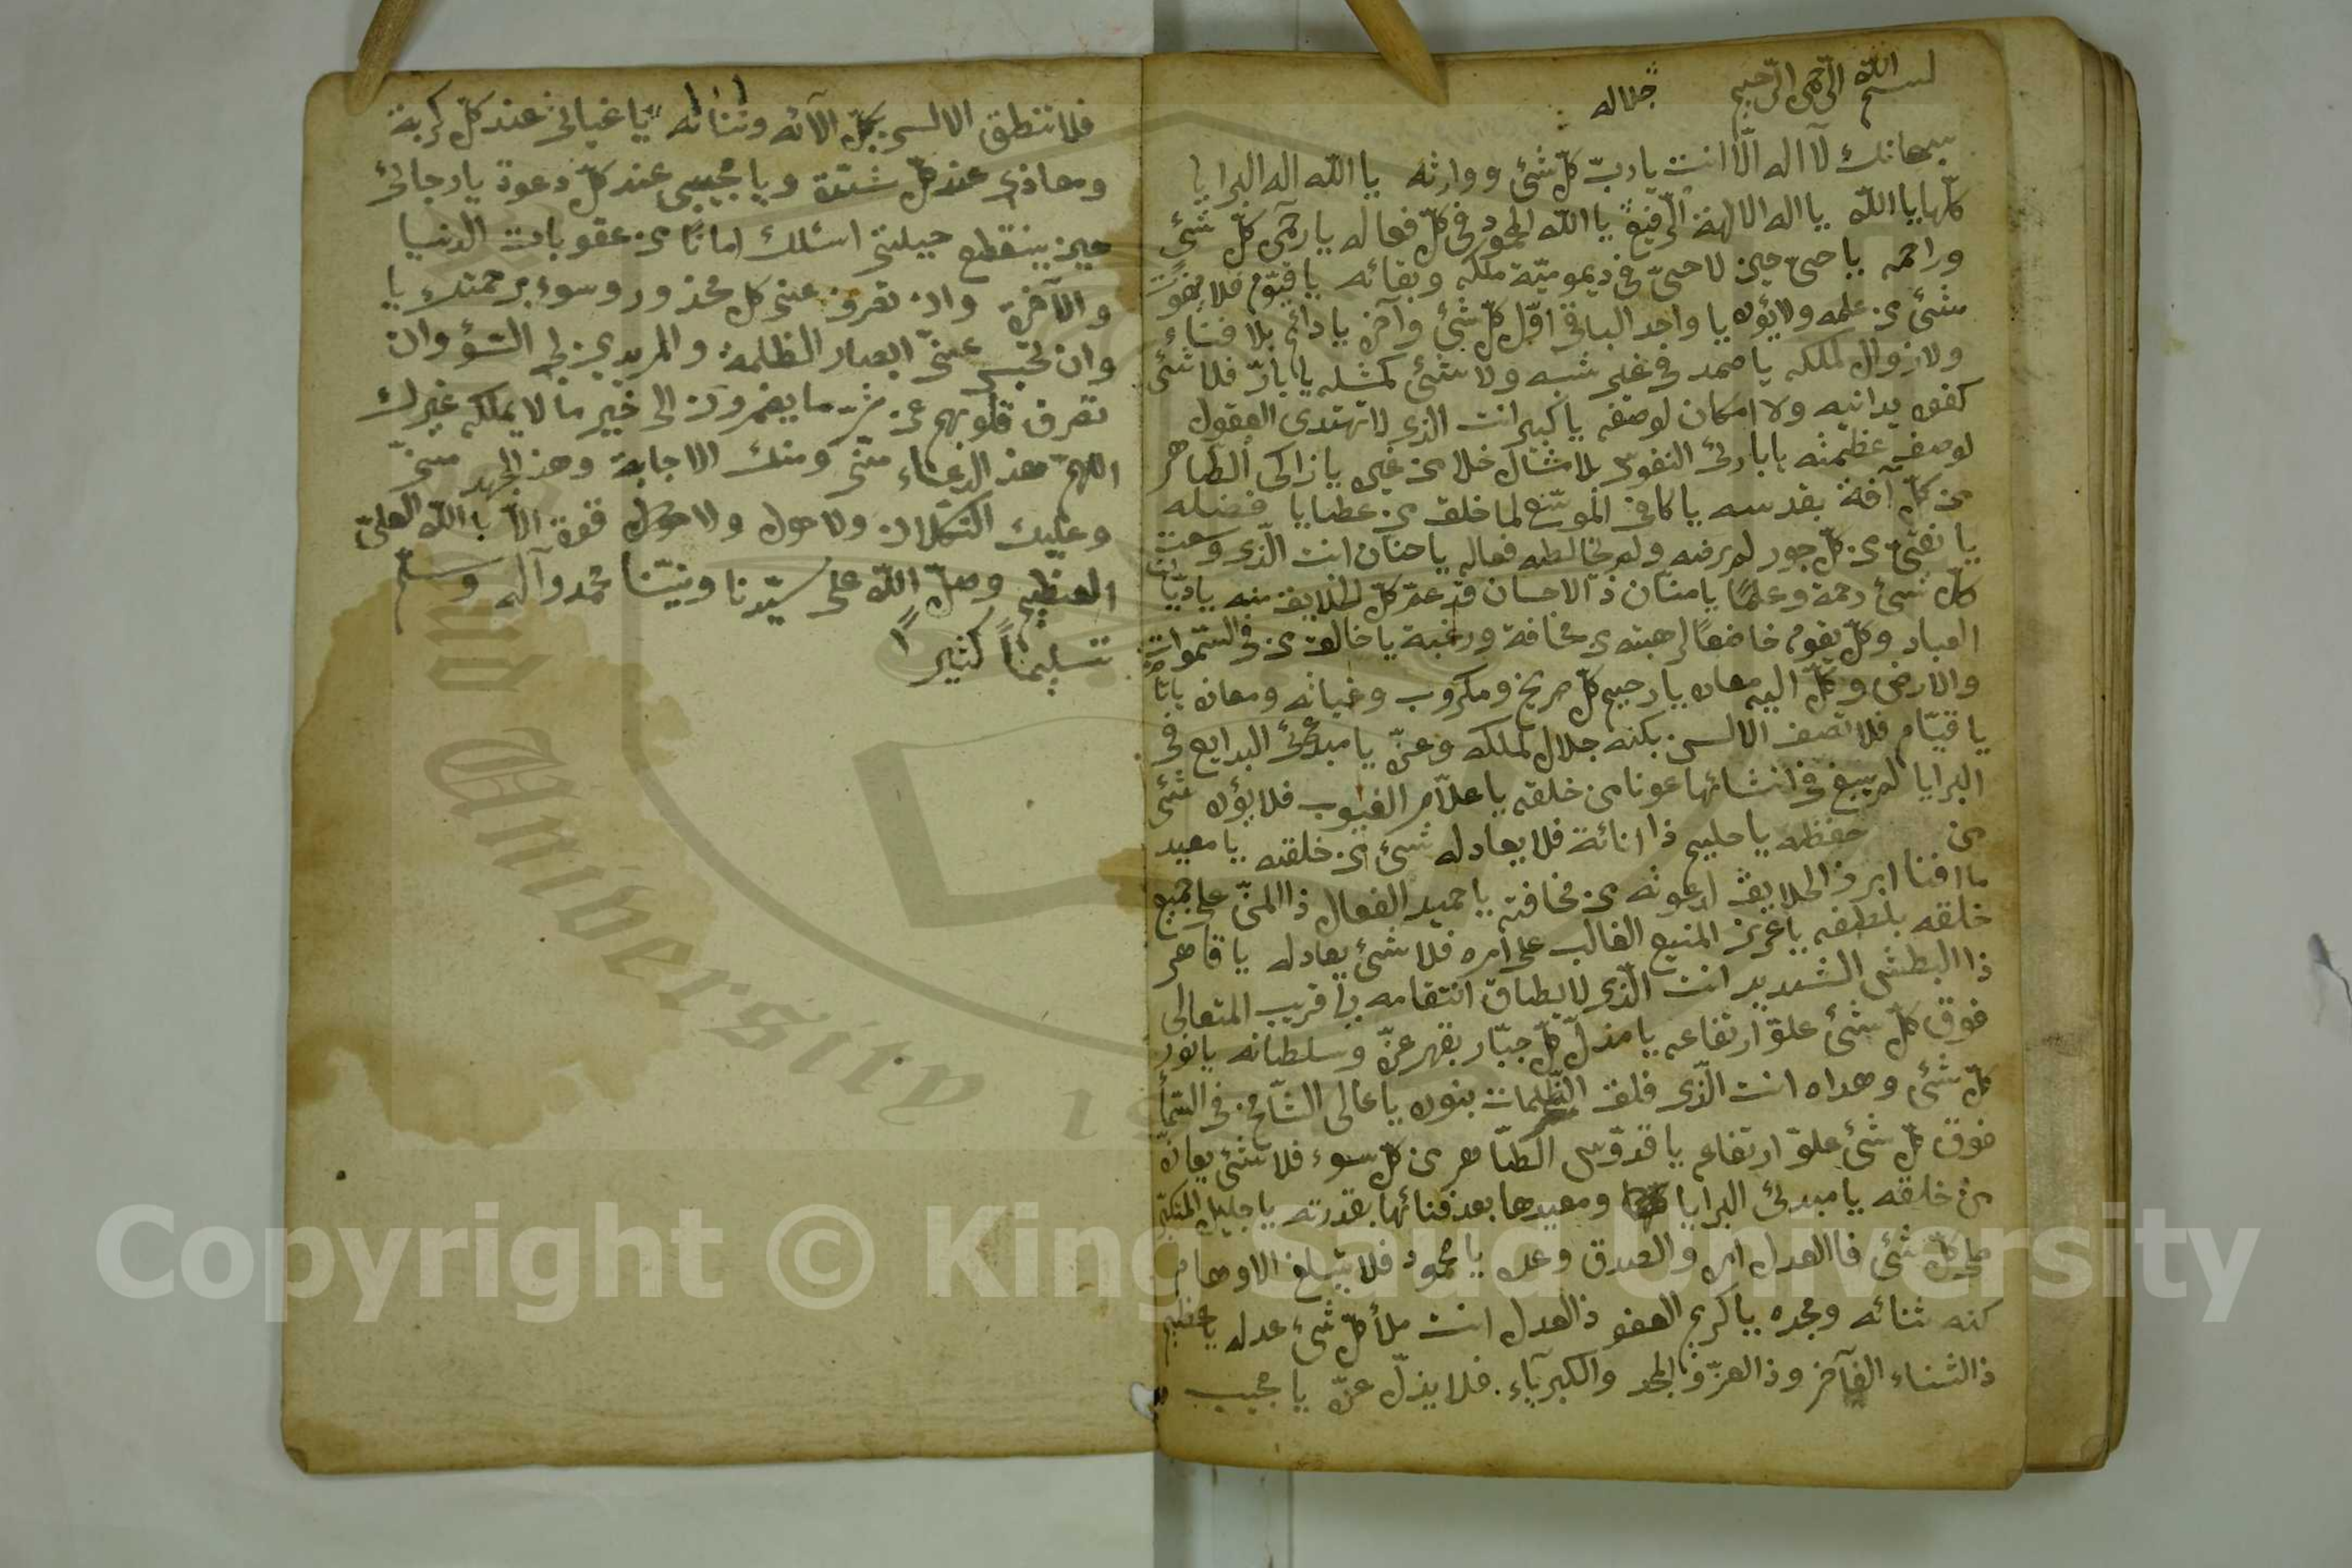 بسم الله الرحمن الرحيم
جلاله
سبحانك لا اله الّا انت يا ربّ كلّ شئ ووارثه يا الله اله البرايا
كلّها يا الله يا اله الالهة الرّفيع يا الله المحمود فى كلّ فعاله يا رحمن كلّ شئ
وراحمه يا حىّ حين لا حىّ فى ديموميّة ملكه وبقائه يا قيّوم فلا يفوت
شئ من علمه ولا يؤده يا واحد الباقى اوّل كلّ شئ وآخره يا دائم بلا فناء
ولا زوال لملكه يا صمد فى غير شبه ولا شئ كمثله يا بارّ فلا شئ
كفوه يدانيه ولا امكان لوصفه يا كبير انت الذى لا تهتدى العقول
لوصف عظمته يا بارئ النفوس بلا مثال خلا من غيره يا زاكى الطّاهر
من كلّ آفة بقدسه يا كافى الموسّع لما خلق من عطايا فضله
يا نقىّ من كلّ جور لم يرضه ولم يخالطه فعاله يا حنان انت الّذى وسعت
كلّ شئ رحمة وعلمًا يا منّان ذا الاحسان قد عمّ كلّ الخلايق منه يا ديّان
العباد وكلّ يقوم خاضعًا لرهبته من مخافة ورغبة يا خالق من فى السّموات
والارض وكلّ اليه معاده يا رحيم كلّ صريخ ومكروب وغياثه ومعاذه يا تامّ
يا قيّام فلا تصف الالسن بكنه جلال لملكه وعزّه يا مبدئ البدايع فى
البرايا لم يبغ فى انشائها عونا من خلقه يا علّام الغيوب فلا يؤده شئ
من حفظه يا حليم ذا انائة فلا يعادله شئ من خلقه يا معيد
ما افنا ابرز الخلايق لدعوته من مخافته يا حميد الفعال ذا المنّ على جميع
خلقه بلطفه يا عزيز المنيع الغالب على امره فلا شئ يعادله يا قاهر
ذا البطش الشديد انت الّذى لا يطاق انتقامه يا قريب المتعالى
فوق كلّ شئ علوّ ارتفاعه يا مذلّ كلّ جبّار بقهر عزّه وسلطانه يا نور
كلّ شئ وهداه انت الّذى فلق الظّلمات بنوره يا عالى الشّامخ فى السّماء
فوق كلّ شئ علوّ ارتفاعه يا قدّوس الطّاهر من كلّ سوء فلا شئ يعازّه
من خلقه يا مبدئ البرايا ومعيدها بعد فنائها بقدرته يا جليل المتكبّر
على كلّ شئ فا العدل امره والصدق وعده يا محمود فلا يبلغ الاوهام
كنه ثنائه ومجده يا كريم العفو ذ العدل انت ملأ كلّ شئ عدله يا عظيم
ذ الثناء الفآخر وذ العزّ والمجد والكبرياء. فلا يذلّ عزّه يا مجيب
فلا تنطق الالسن بكلّ آلآئه وثنائه يا غياثى عند كلّ كربة
ومعاذى عند كلّ شدّة ويا مجيبى عند كلّ دعوة يا رجائى
حين ينقطع حيلتى اسئلك امانًا من عقوبات الدنيا
والآخرة وان تصرف عنى كل محذور وسوء برحمتك يا
وان تحبس عنّى ابصار الظلمة والمريدين لى السّؤ وان
تصرف قلوبهم عن شر ما يضمرون الى خير ما لا يملكه غيرك
اللهمّ هذ الدعاء منّى ومنك الاجابة وهذ الجهد منىّ
وعليك التكلان ولا حول ولا قوة الّا با الله العلىّ
العظيم وصلّ الله على سيّدنا ونبيّنا محمد وآله وسلّم
تسليمًا كثيرًا
Copyright © King Saud University